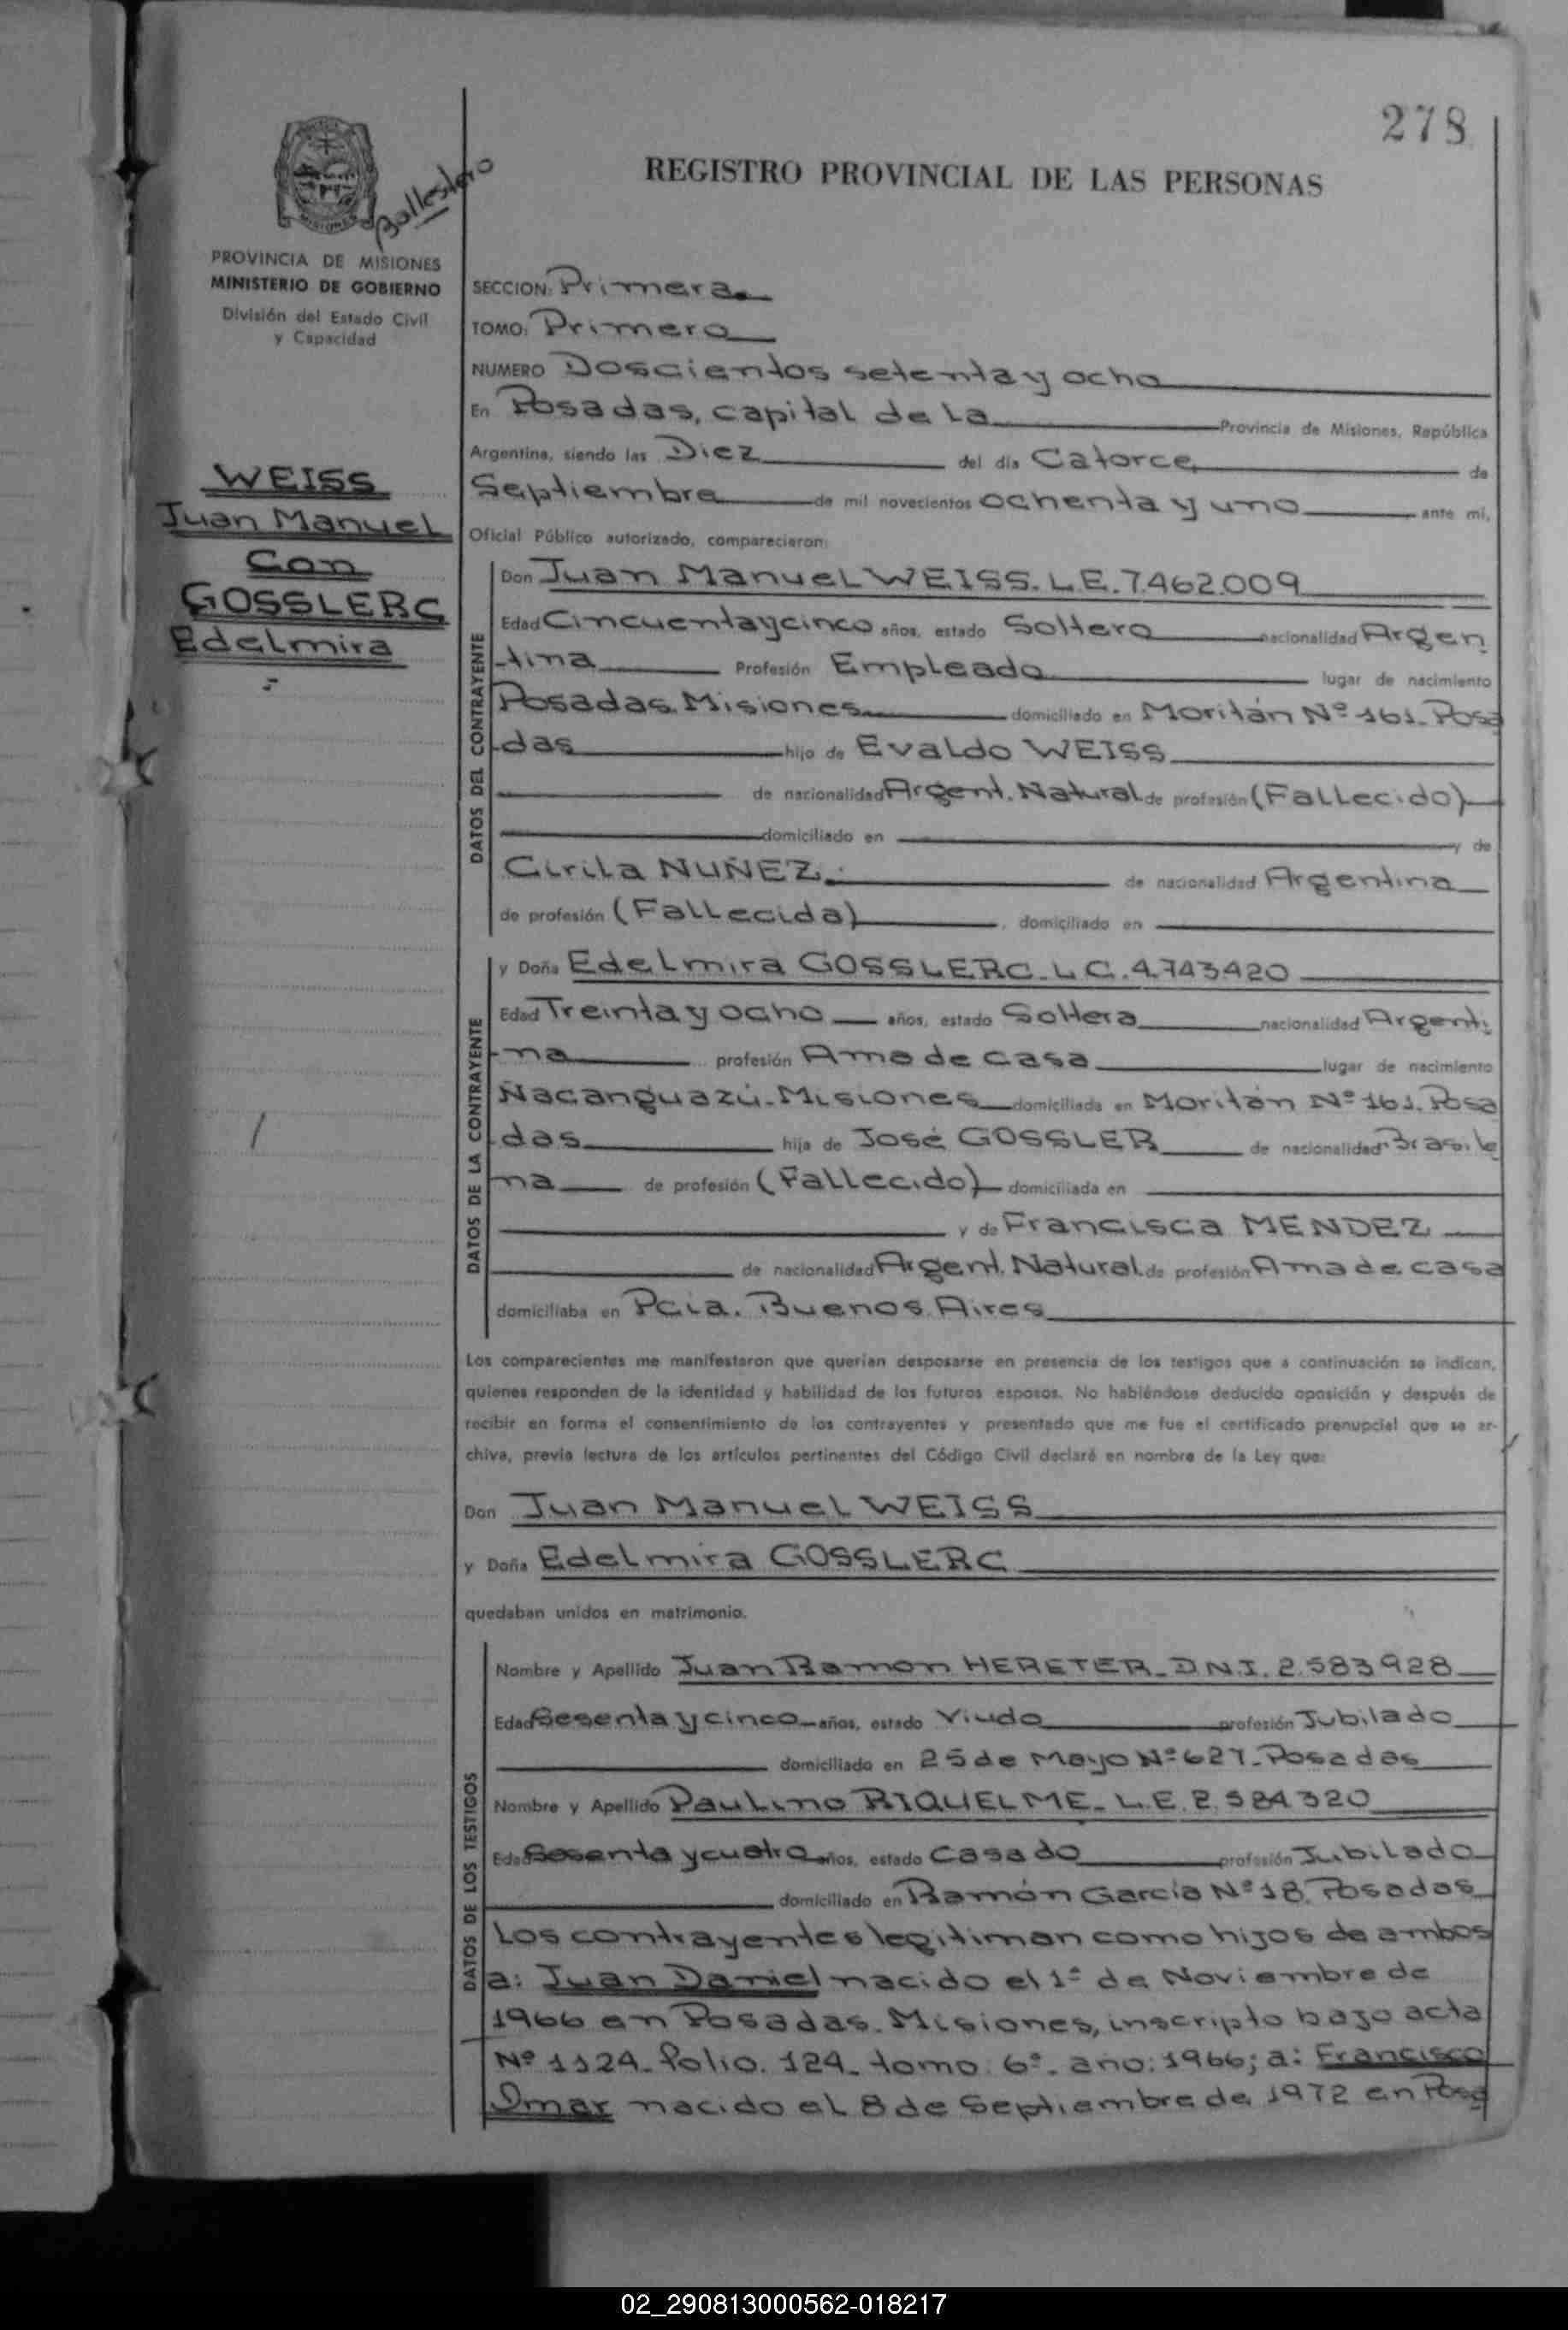 278
REGISTRO PROVINCIAL DE LAS PERSONAS
MISIONES
Ballestero
PROVINCIA DE MISIONES
MINISTERIO DE GOBIERNO
División del Estado Civil
y Capacidad
WEISS
Juan Manuel
Con
GOSSLERC
Edelmira
SECCION: Primera
TOMO: Primero
NUMERO Doscientos setenta y ocho
En Posadas, capital de la Provincia de Misiones, República
Argentina, siendo las Diez del día Catorce de
Septiembre de mil novecientos ochenta y uno ante mi,
Oficial Público autorizado, comparecieron:
DATOS DEL CONTRAYENTE
Don Juan Manuel WEISS. L.E. 7.462.009
Edad Cincuentaycinco años, estado Soltero nacionalidad Argen
-tina Profesión Empleado lugar de nacimiento
Posadas. Misiones domiciliado en Moritán Nº 161. Posa
-das hijo de Evaldo WEISS
de nacionalidad Argent. Natural de profesión (Fallecido)
domiciliado en y de
Cirila NUÑEZ de nacionalidad Argentina
de profesión (Fallecida), domiciliado en
DATOS DE LA CONTRAYENTE
y Doña Edelmira GOSSLERC. L.C. 4.743.420
Edad Treinta y ocho años, estado Soltera nacionalidad Argenti
-na profesión Ama de casa lugar de nacimiento
Ñacanguazú. Misiones domiciliada en Moritán Nº 161. Posa
-das hija de José GOSSLER de nacionalidad Brasile
na de profesión (Fallecido) domiciliada en
y de Francisca MENDEZ
de nacionalidad Argent. Natural de profesión Ama de casa
domiciliaba en Pcia. Buenos Aires
Los comparecientes me manifestaron que querían desposarse en presencia de los testigos que a continuación se indican,
quienes responden de la identidad y habilidad de los futuros esposos. No habiéndose deducido oposición y después de
recibir en forma el consentimiento de los contrayentes y presentado que me fue el certificado prenupcial que se ar-
chiva, previa lectura de los artículos pertinentes del Código Civil declaré en nombre de la Ley que:
Don Juan Manuel WEISS
y Doña Edelmira GOSSLERC
quedaban unidos en matrimonio.
DATOS DE LOS TESTIGOS
Nombre y Apellido Juan Ramon HERETER. D.N.I. 2.583.928
Edad Sesenta y cinco años, estado Viudo profesión Jubilado
domiciliado en 25 de Mayo Nº 627. Posadas
Nombre y Apellido Paulino RIQUELME. L.E. 2.584.320
Edad Sesenta y cuatro años, estado Casado profesión Jubilado
domiciliado en Ramón Garcia Nº 18. Posadas
Los contrayentes legitiman como hijos de ambos
a: Juan Daniel nacido el 1º de Noviembre de
1966 en Posadas. Misiones, inscripto bajo acta
Nº 1124. folio. 124. tomo: 6º. año: 1966; a: Francisco
Omar nacido el 8 de Septiembre de 1972 en Posa
02_290813000562-018217